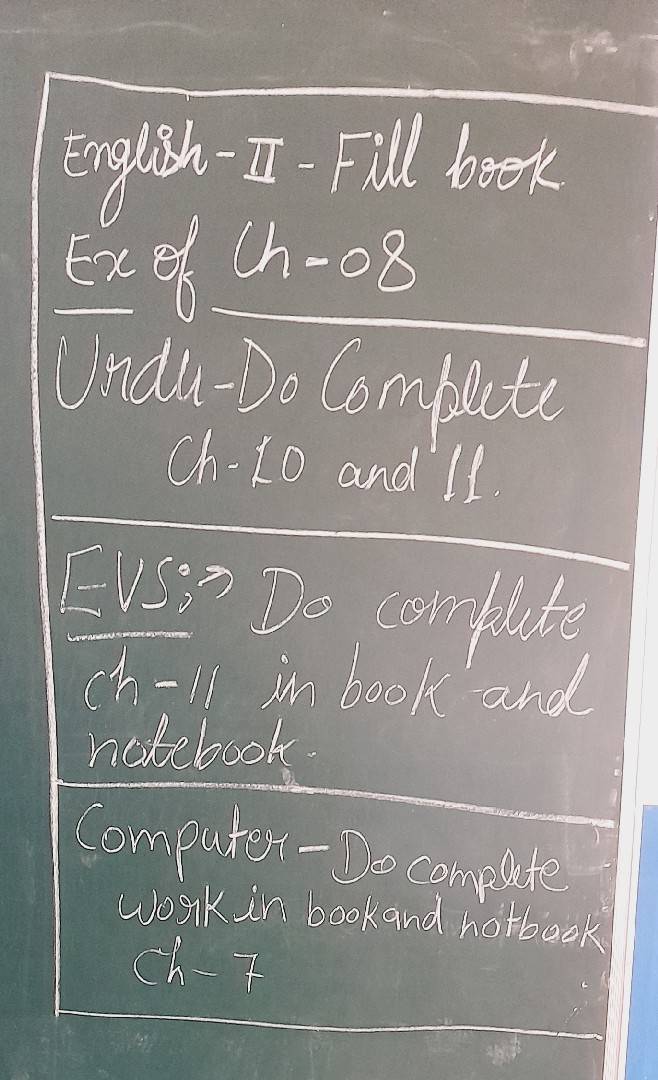 English-II-Fill book
Ex of Ch-08
Urdu-Do Complete
Ch-10 and 11.
EVS:→ Do complete
ch-11 in book and
notebook.
Computer-Do complete
work in book and notbook
Ch-7